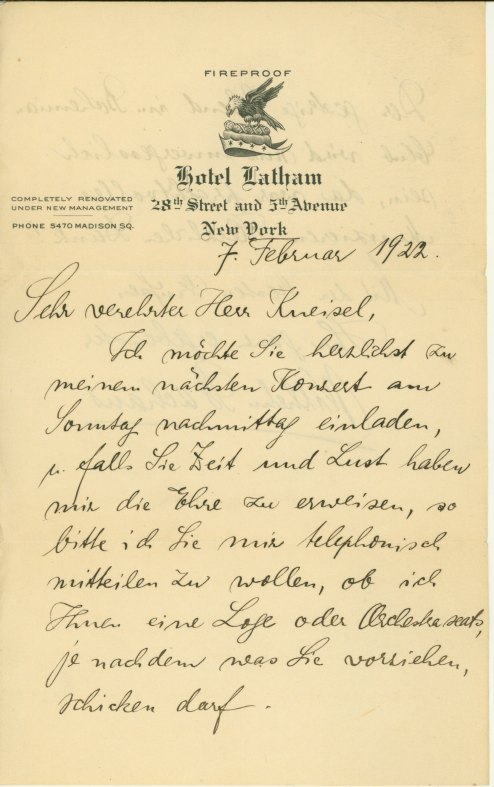 FIREPROOF
Hotel Latham
28th Street and 5th Avenue
New York
COMPLETELY RENOVATED
UNDER NEW MANAGEMENT
PHONE 5470 MADISON SQ.
7. Februar 1922.
Sehr verehrter Herr Kneisel,
Ich möchte Sie herzlichst zu
meinem nächsten Konzert am
Sonntag nachmittag einladen,
u. falls Sie Zeit und Lust haben
mir die Ehre zu erweisen, so
bitte ich Sie mir telephonisch
mitteilen zu wollen, ob ich
Ihnen eine Loge oder Orchestraseats,
je nachdem was Sie vorziehen,
schicken darf.